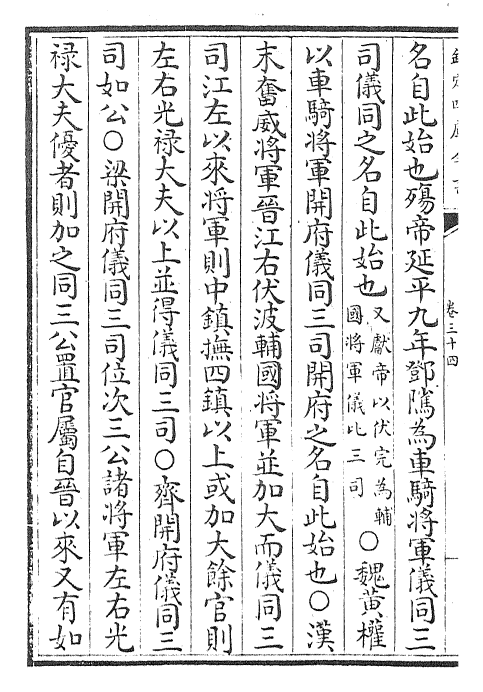 欽定四庫全書
卷三十四
名自此始也殤帝延平九年鄧隲為車騎將軍儀同三
司儀同之名自此始也又獻帝以伏完為輔國將軍儀比三司○魏黃權
以車騎將軍開府儀同三司開府之名自此始也○漢
末奮威將軍晉江右伏波輔國將軍並加大而儀同三
司江左以來將軍則中鎮撫四鎮以上或加大餘官則
左右光祿大夫以上並得儀同三司○齊開府儀同三
司如公○梁開府儀同三司位次三公諸將軍左右光
祿大夫優者則加之同三公置官屬自晉以來又有如